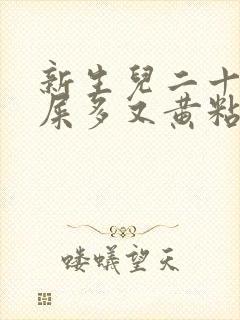 新生兒二十
屎多又黄粘
喽蟻望天